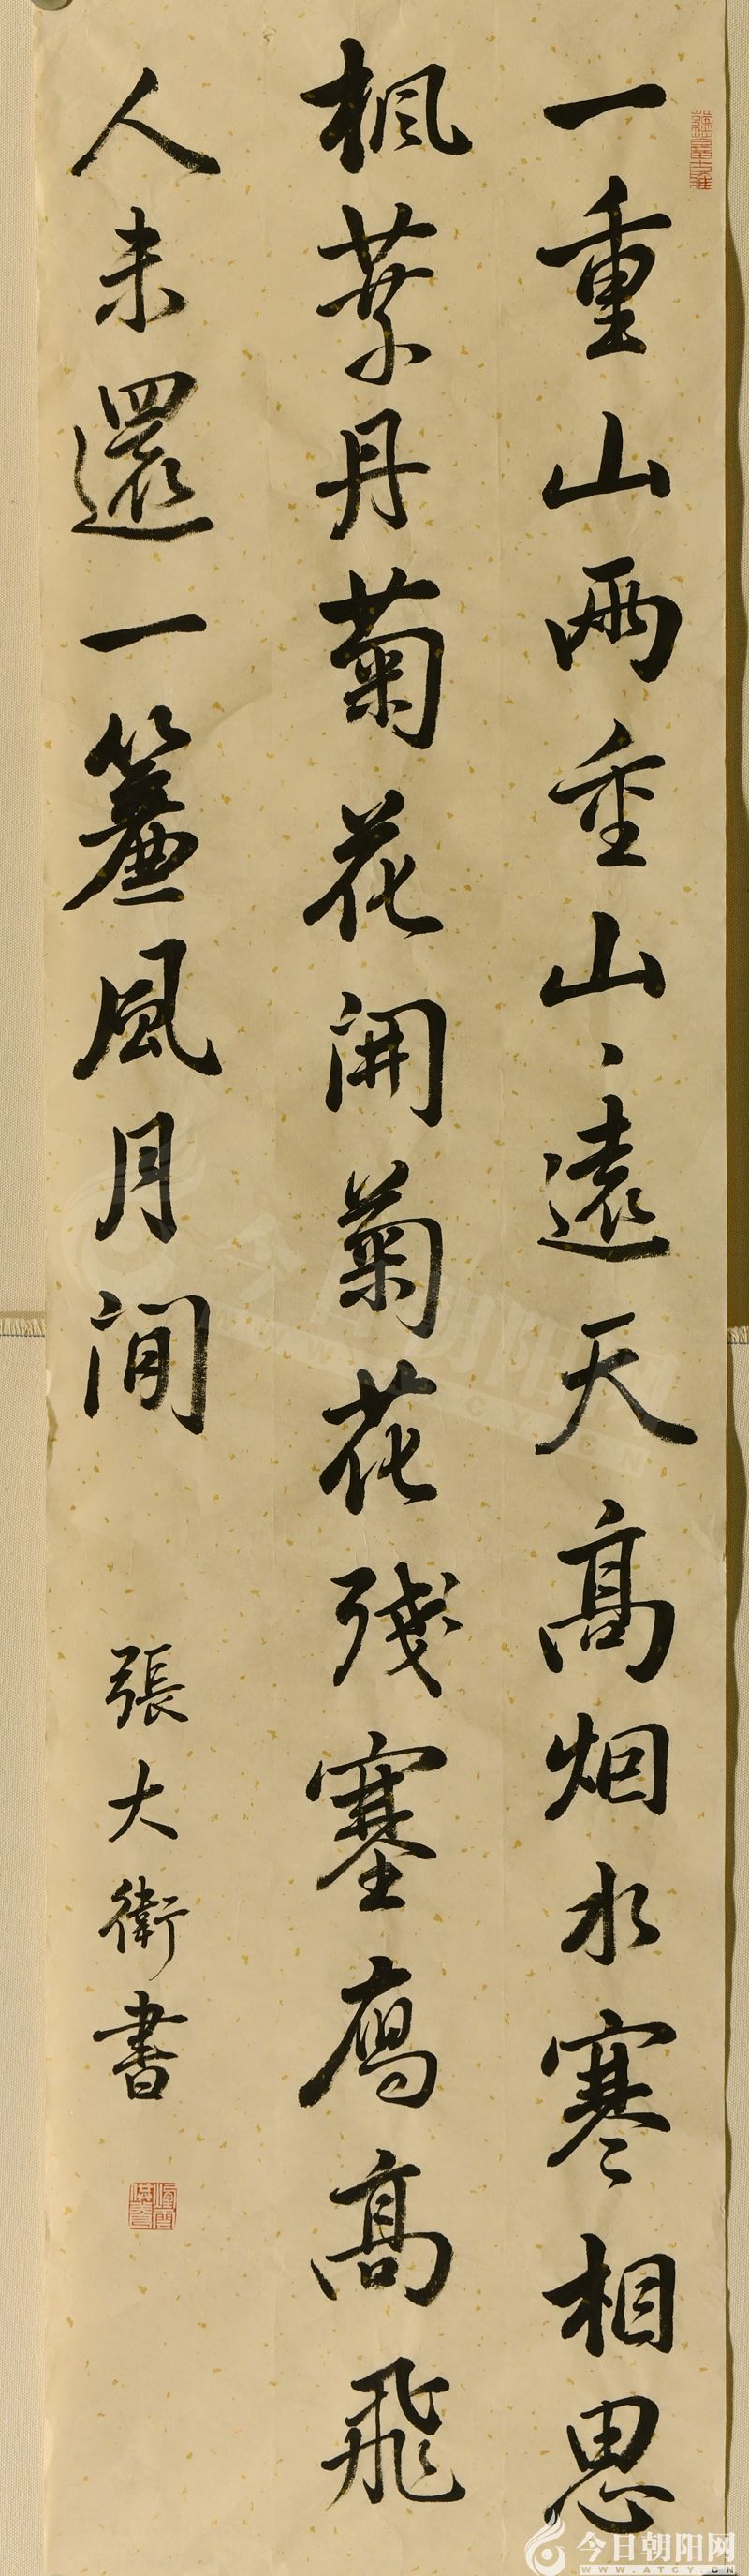 一重山兩重山丶遠天高烟水寒相思
枫葉丹菊花開菊花残塞雁高飛
人未還一簾風月間
張大衛書
今日朝阳网
WWW.ATCY.CN